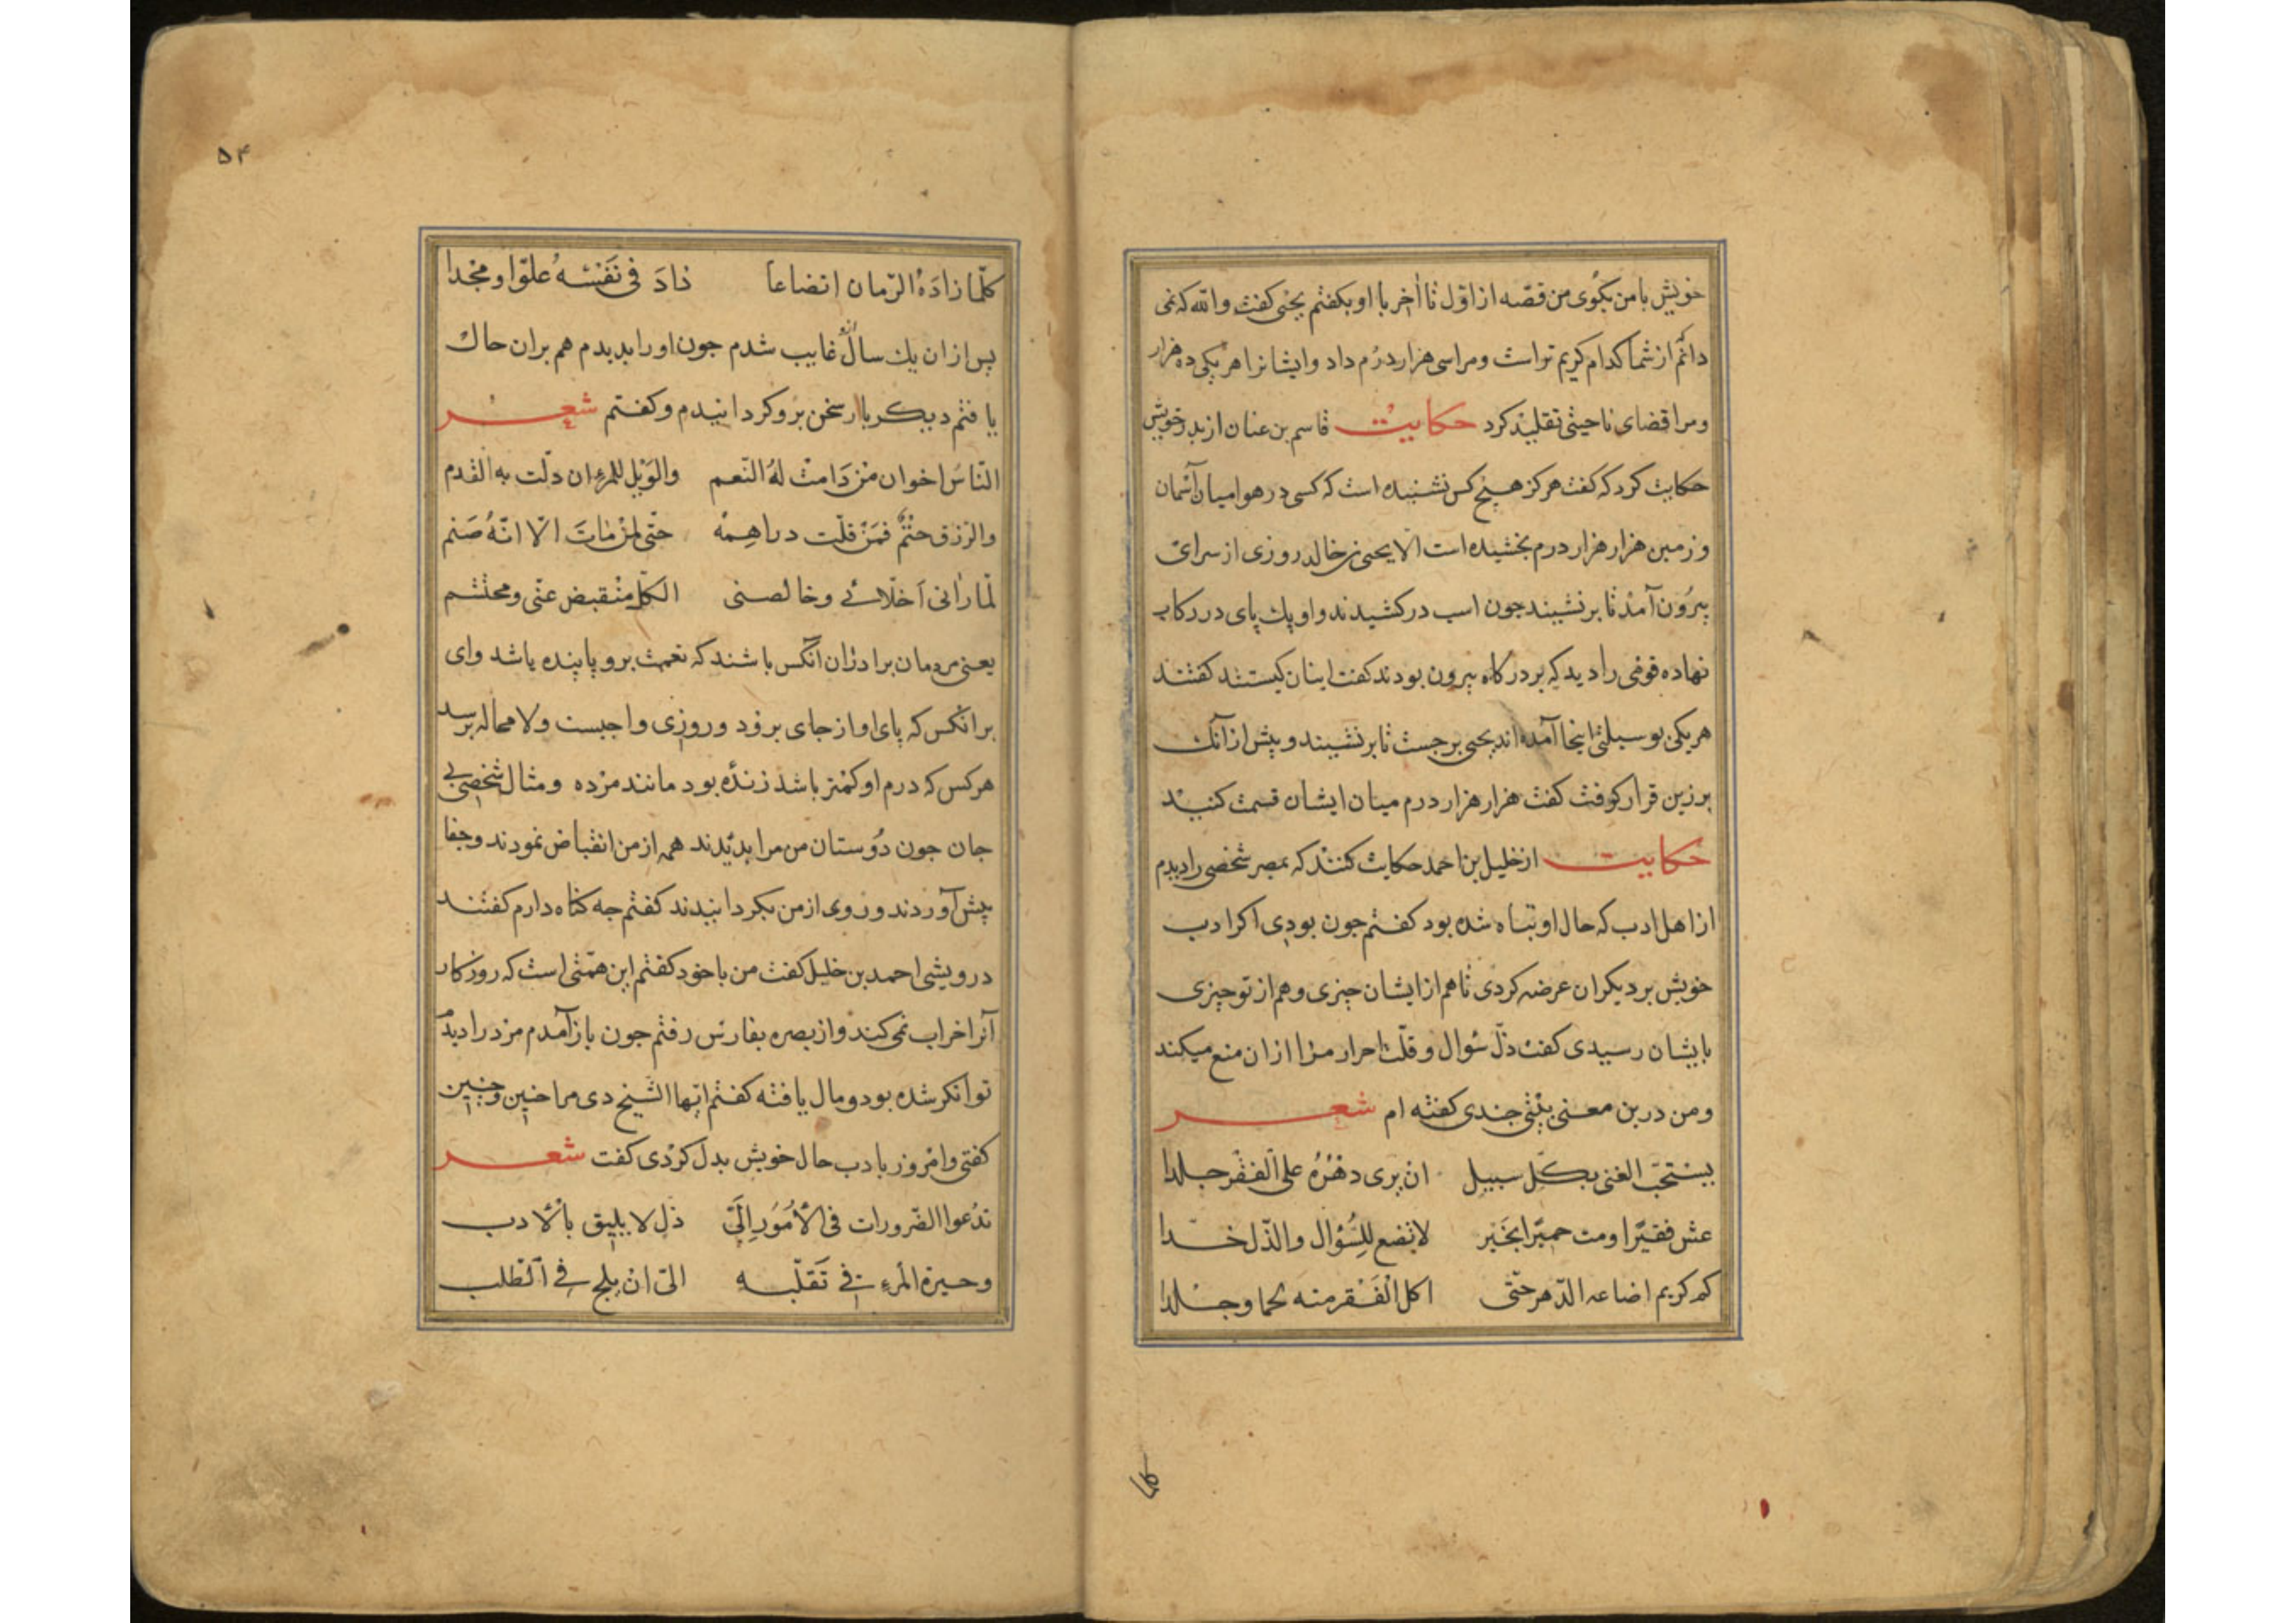 خویش با من بکوی من قصّه از اوّل تا آخر با او بکفتم یحیی کفت والله که نمی
دانم از شما کدام کریم تراست ومرا سی هزار درم داد وایشانرا هر یکی ده هزار
ومرا قضای ناحیتی تقلید کرد حکایت قاسم بن عنان از پدر خویش
حکایت کرد که کفت هرکز هیچ کس نشنیده است که کسی در هوا میان آسمان
وزمین هزار هزار درم بخشیده است الا یحیی بن خالد روزی از سرای
بیرون آمد تا بر نشیند جون اسب در کشیدند واو یک پای در رکاب
نهاده قومی را دید که بر درکاه بیرون بودند کفت اینان کیستند کفتند
هر یکی بوسیلتی اینجا آمده اند یحیی برجست تا بر نشیند وپیش از آنک
بر زین قرار کوفت کفت هزار هزار درم میان ایشان قسمت کنید
حکایت از خلیل بن احمد حکایت کنند که بمصر شخصی را دیدم
از اهل ادب که حال او تباه شده بود کفتم جون بودی اکر ادب
خویش بر دیکران عرضه کردی تا هم از ایشان چیزی وهم از تو چیزی
بایشان رسیدی کفت ذلّ سُوال وقلّت احرار مرا از ان منع میکند
ومن درین معنی بیتی جندی کفته ام شعر
یستحبّ الغنی بکلّ سبیل ان یری دهْرُهُ علی الفقر جلدا
عش فقیرًا ومت حمیًرا بخَیر لا تضع للسُؤال والذّل خدّا
کم کریم اضاعه الدّهر حتّی اکل الفَقر منه لحما وجلدا
۵۴
کلّما زادَهُ الزّمان اتضاعاً ذادَ فی نَفْسهُ علوّا ومجدا
پس از ان یک سال غایب شدم جون او را بدیدم هم بران حال
یافتم دیکر بار سخن برو کردانیدم وکفتم شعر
النّاسُ اخوان منْ دَامتْ لهُ النّعم والوَیْل للمرءِ ان دلّت به القدم
والرّزق حتْمٌ فمَنْ قلّت دراهمهُ حتّی لمنْ ماتَ الّا انّهُ صَنم
لّما رأنی اَخلّائی وخالصنی الکلّ منْقبض عنّی ومحتشم
یعنی مردمان برادران آنکس باشند که نعمت برو پاینده باشد وای
بر انکس که پای او از جای برفود وروزی واجبست ولا محاله برسد
هر کس که درم او کمتر باشد زنده بود مانند مرده ومثال شخصی بی
جان جون دوستان من مرا بدیدند همه از من انقباض نمودند وجفا
پیش آوردند وروی از من بکردانیدند کفتم جه کناه دارم کفتند
درویشی احمد بن خلیل کفت من با خود کفتم این همّتی است که روزکار
آنرا خراب نمی کند واز بصره بفارس رفتم جون باز آمدم مرد را دیدم
توانکر شده بود ومال یافته کفتم ایّها الشیخ دی مرا چنین وچنین
کفتی وامروز بادب حال خویش بدل کردی کفت شعر
تدْعوا الضّرورات فی الأمُوَر إلَیّ ذلّ لا یلیق بالأدب
وحیرة المرءِ فی تَقلّبه الیّ ان یلجّ فی الطّلب